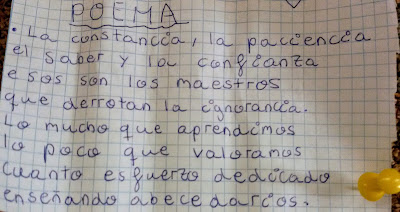 POEMA
• La constancia, la pacciencia
el saber y la confianza
esos son los maestros
que derrotan la cignorancia.
Lo mucho que aprendimos
lo poco que valoramos
cuanto esfuerzo dedicado
enseñando abecedarios.